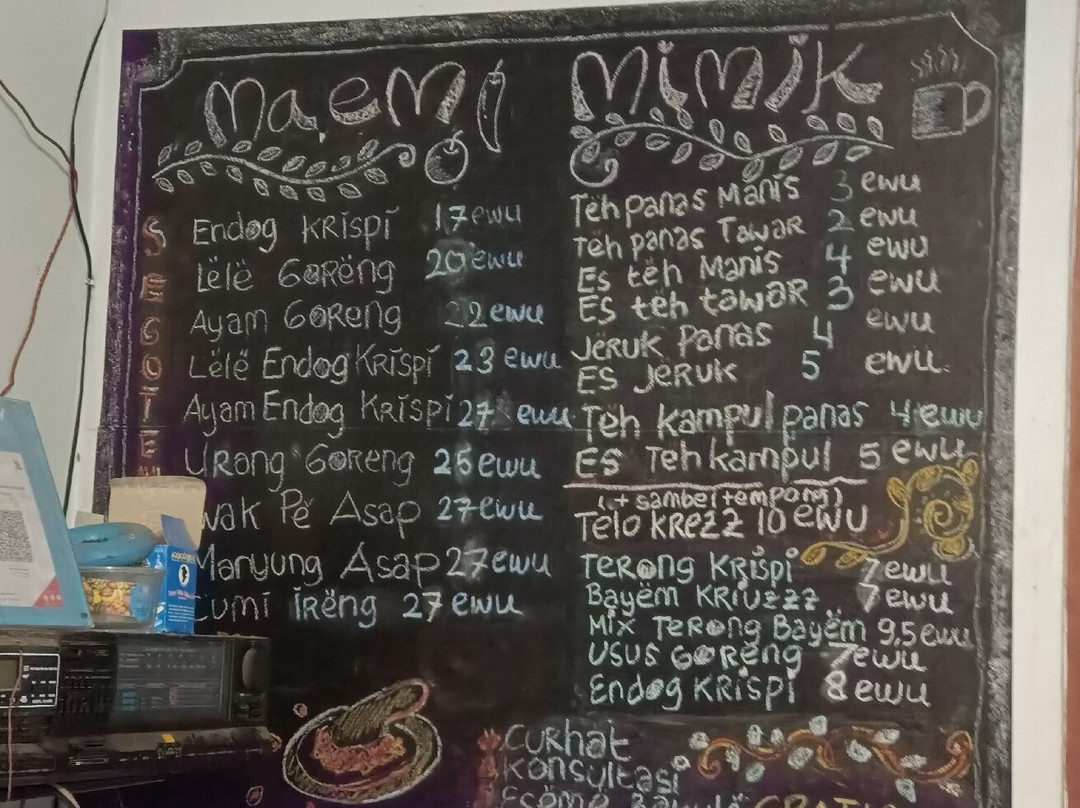 Maem
SEGOTEM
Endog Krispi 17 ewu
Lëlë Gorëng 20 ewu
Ayam Goreng 22 ewu
Lëlë Endog Krispi 23 ewu
Ayam Endog Krispi 27 ewu
Urang Goreng 25 ewu
wak Pé Asap 27 ewu
Manyung Asap 27 ewu
Cumi Irëng 27 ewu
Mimik
Tëh panas Manis 3 ewu
Tëh panas Tawar 2 ewu
Es tëh Manis 4 ewu
Es teh tawar 3 ewu
Jëruk Panas 4 ewu
Es Jeruk 5 ewu
Tëh kampul panas 4 ewu
Es Teh kampul 5 ewu
(+ sambel tempong)
Telo Krezz 10 ewu
Terong Krispi 7 ewu
Bayëm Kriuzzz 7 ewu
Mix Terong Bayëm 9,5 ewu
Usus Goreng 7 ewu
Endog Krispi 8 ewu
Curhat
Konsultasi